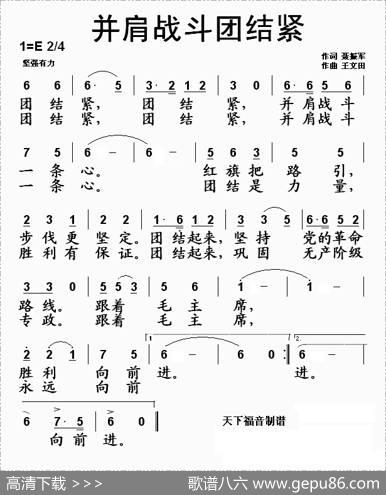 并肩战斗团结紧
1=E 2/4
作词 聂振军
坚强有力
作曲 王文田
6 6 | 6· 5 | 3·2 1 2 | 3 6 | 6·6 5 6 |
团 结 紧, 团 结 紧, 并肩战斗
团 结 紧, 团 结 紧, 并肩战斗
7 5 | 6 - | 6 - | 5 6 3 | 5 5 |
一 条 心。 红 旗 把 路 引,
一 条 心。 团 结 是 力 量,
2 3 1 | 2 5 | 1·6 1 2 | 3 3 5 | 6·6 5 2 |
步 伐 更 坚 定。团 结起来, 坚 持 党的革命
胜 利 有 保 证。团 结起来, 巩 固 无产阶级
3 3 0 | 5 5 3 | 2 5 | 1 - | 1 - |
路 线。 跟着 毛 主 席,
专 政。 跟着 毛 主 席,
1. 2.
2 2 1 | 7 5 | 6 - | 6 - :| 6 - |
胜 利 向 前 进。 进。
永 远 向 前
6 7·5 | 6 0 |
天下福音制谱
向 前 进。
高清下载 >>>
歌谱八六 www.gepu86.com